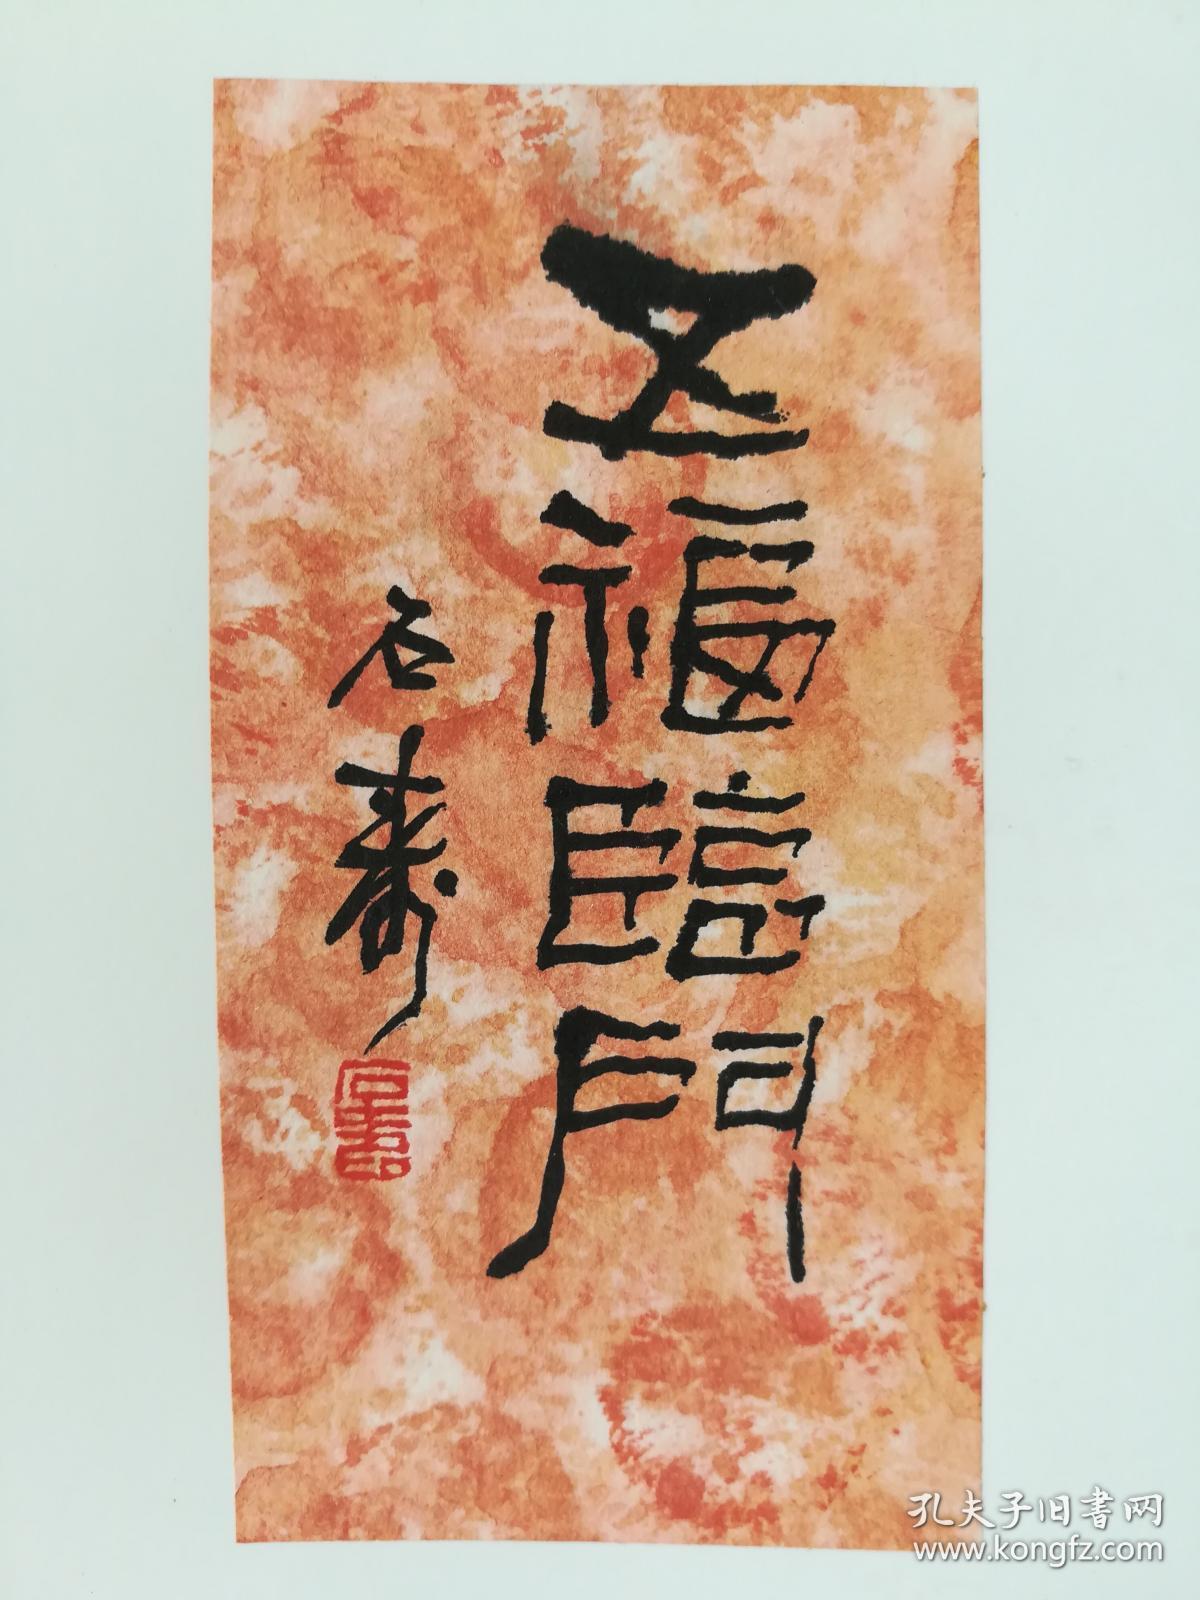 五福臨門
石壽
石壽
孔夫子旧書网
www.kongfz.com